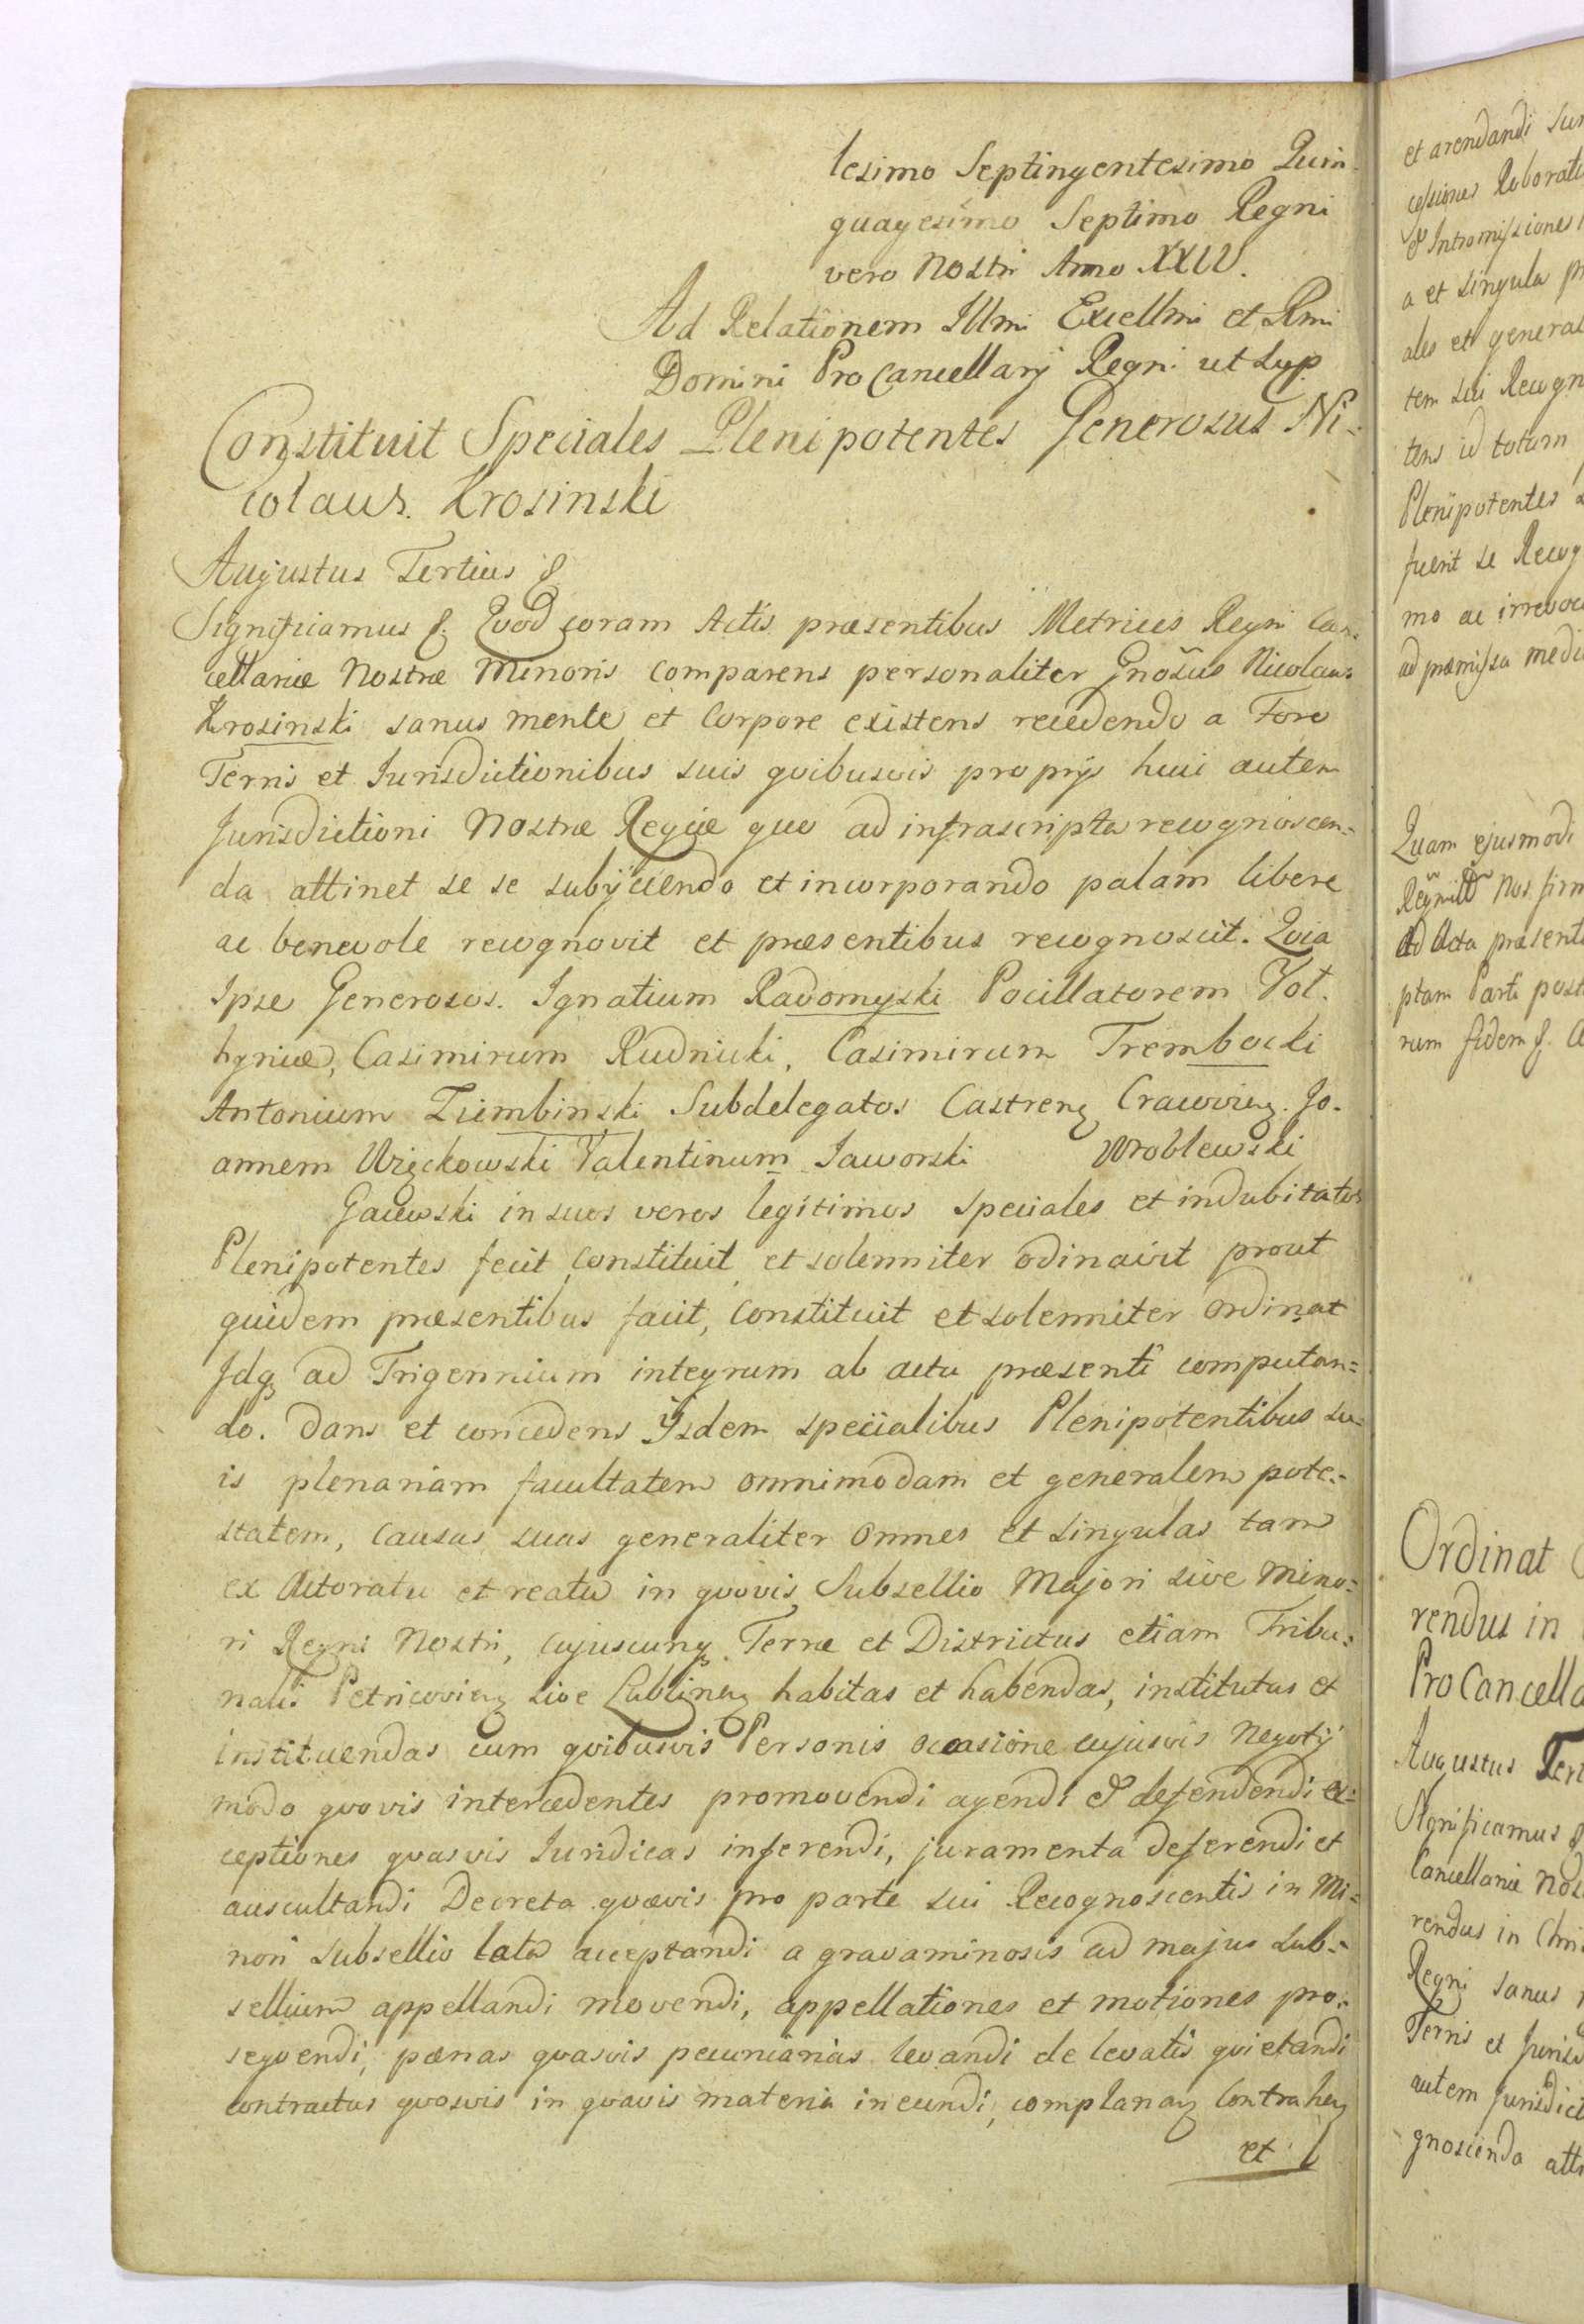 lesimo Septingentesimo Quin-
quagesimo Septimo Regni
vero Nostri Anno XXIV.
Ad Relationem Illmi Excellmi et Rmi
Domini Pro Cancellarij Regni ut Sup.
Constituit Speciales Plenipotentes Generosus Ni-
colaus Krosinski
Augustus Tertius &
Significamus &. Quod coram Actis præsentibus Metrices Regni Can-
cellariæ Nostræ Minoris comparens personaliter Gnosus Nicolaus
Krosinski sanus mente et Corpore existens recedendo a Foro
Terris et Jurisdictionibus suis qvibusvis proprijs huic autem
Jurisdictioni Nostræ Regiæ quo ad infrascripta recognoscen-
da attinet se se subijciendo et incorporando palam libere
ac benevole recognovit et præsentibus recognoscit. Qvia
Ipse Generosos. Ignatium Radomyski Pocillatorem Vol.
hyniæ, Casimirum Rudnicki, Casimirum Trembecki
Antonium Ziembinski Subdelegatos Castreng Cracovieng. Jo-
annem Więckowski Valentinum Jaworski Wroblewski
Gaiewski in suos veros legitimos speciales et indubitatos
Plenipotentes fecit constituit et solenniter odinavit prout
quidem præsentibus facit, constituit et solenniter ordinat
Idq ad Trigennium integrum ab actu præsenti computan=
do. Dans et concedens ijsdem specialibus Plenipotentibus su-
is plenariam facultatem omnimodam et generalem pote-
statem, causas suas generaliter omnes et singulas tam
ex Actoratu et reatu in qvovis Subsellio Majori sive Mino-
ri Regni Nostri, cujuscunq Terræ et Districtus etiam Tribu-
nalis Petricovieng sive Lublineng habitas et habendas, institutas et
instituendas cum qvibusvis Personis occasione cujusvis Negotij
modo qvovis intercedentes promovendi agendi & defendendi ex-
ceptiones qvasvis Juridicas inferendi, juramenta deferendi et
auscultandi Decreta qvævis pro parte sui Recognoscentis in Mi-
nori subsellio lata acceptandi a gravaminosis ad majus sub-
sellium appellandi movendi, appellationes et motiones pro-
seqvendi, pænas qvasvis pecuniarias levandi de levatis qvietandi
contractus qvosvis in qvavis materia ineundi, complanang Contraheng
et
et arendandi
cessiones Roborati
& Intromissiones
a et singula
ales et general
tem sui Recogn
tens id totum
Plenipotentes
fuerit se Recog
mo ac irrevoc
ad præmissa medi
Quam ejusmodi
Nos firm
Ad Acta præsent
ptam Parti post
rum fidem &.
Ordinat
rendus in
Pro Cancella
Augustus Tert
Significamus &
Cancellariæ Nos
rendus in Chri
Regni sanus
Terris et Jurisd
autem Jurisdict
gnoscenda att